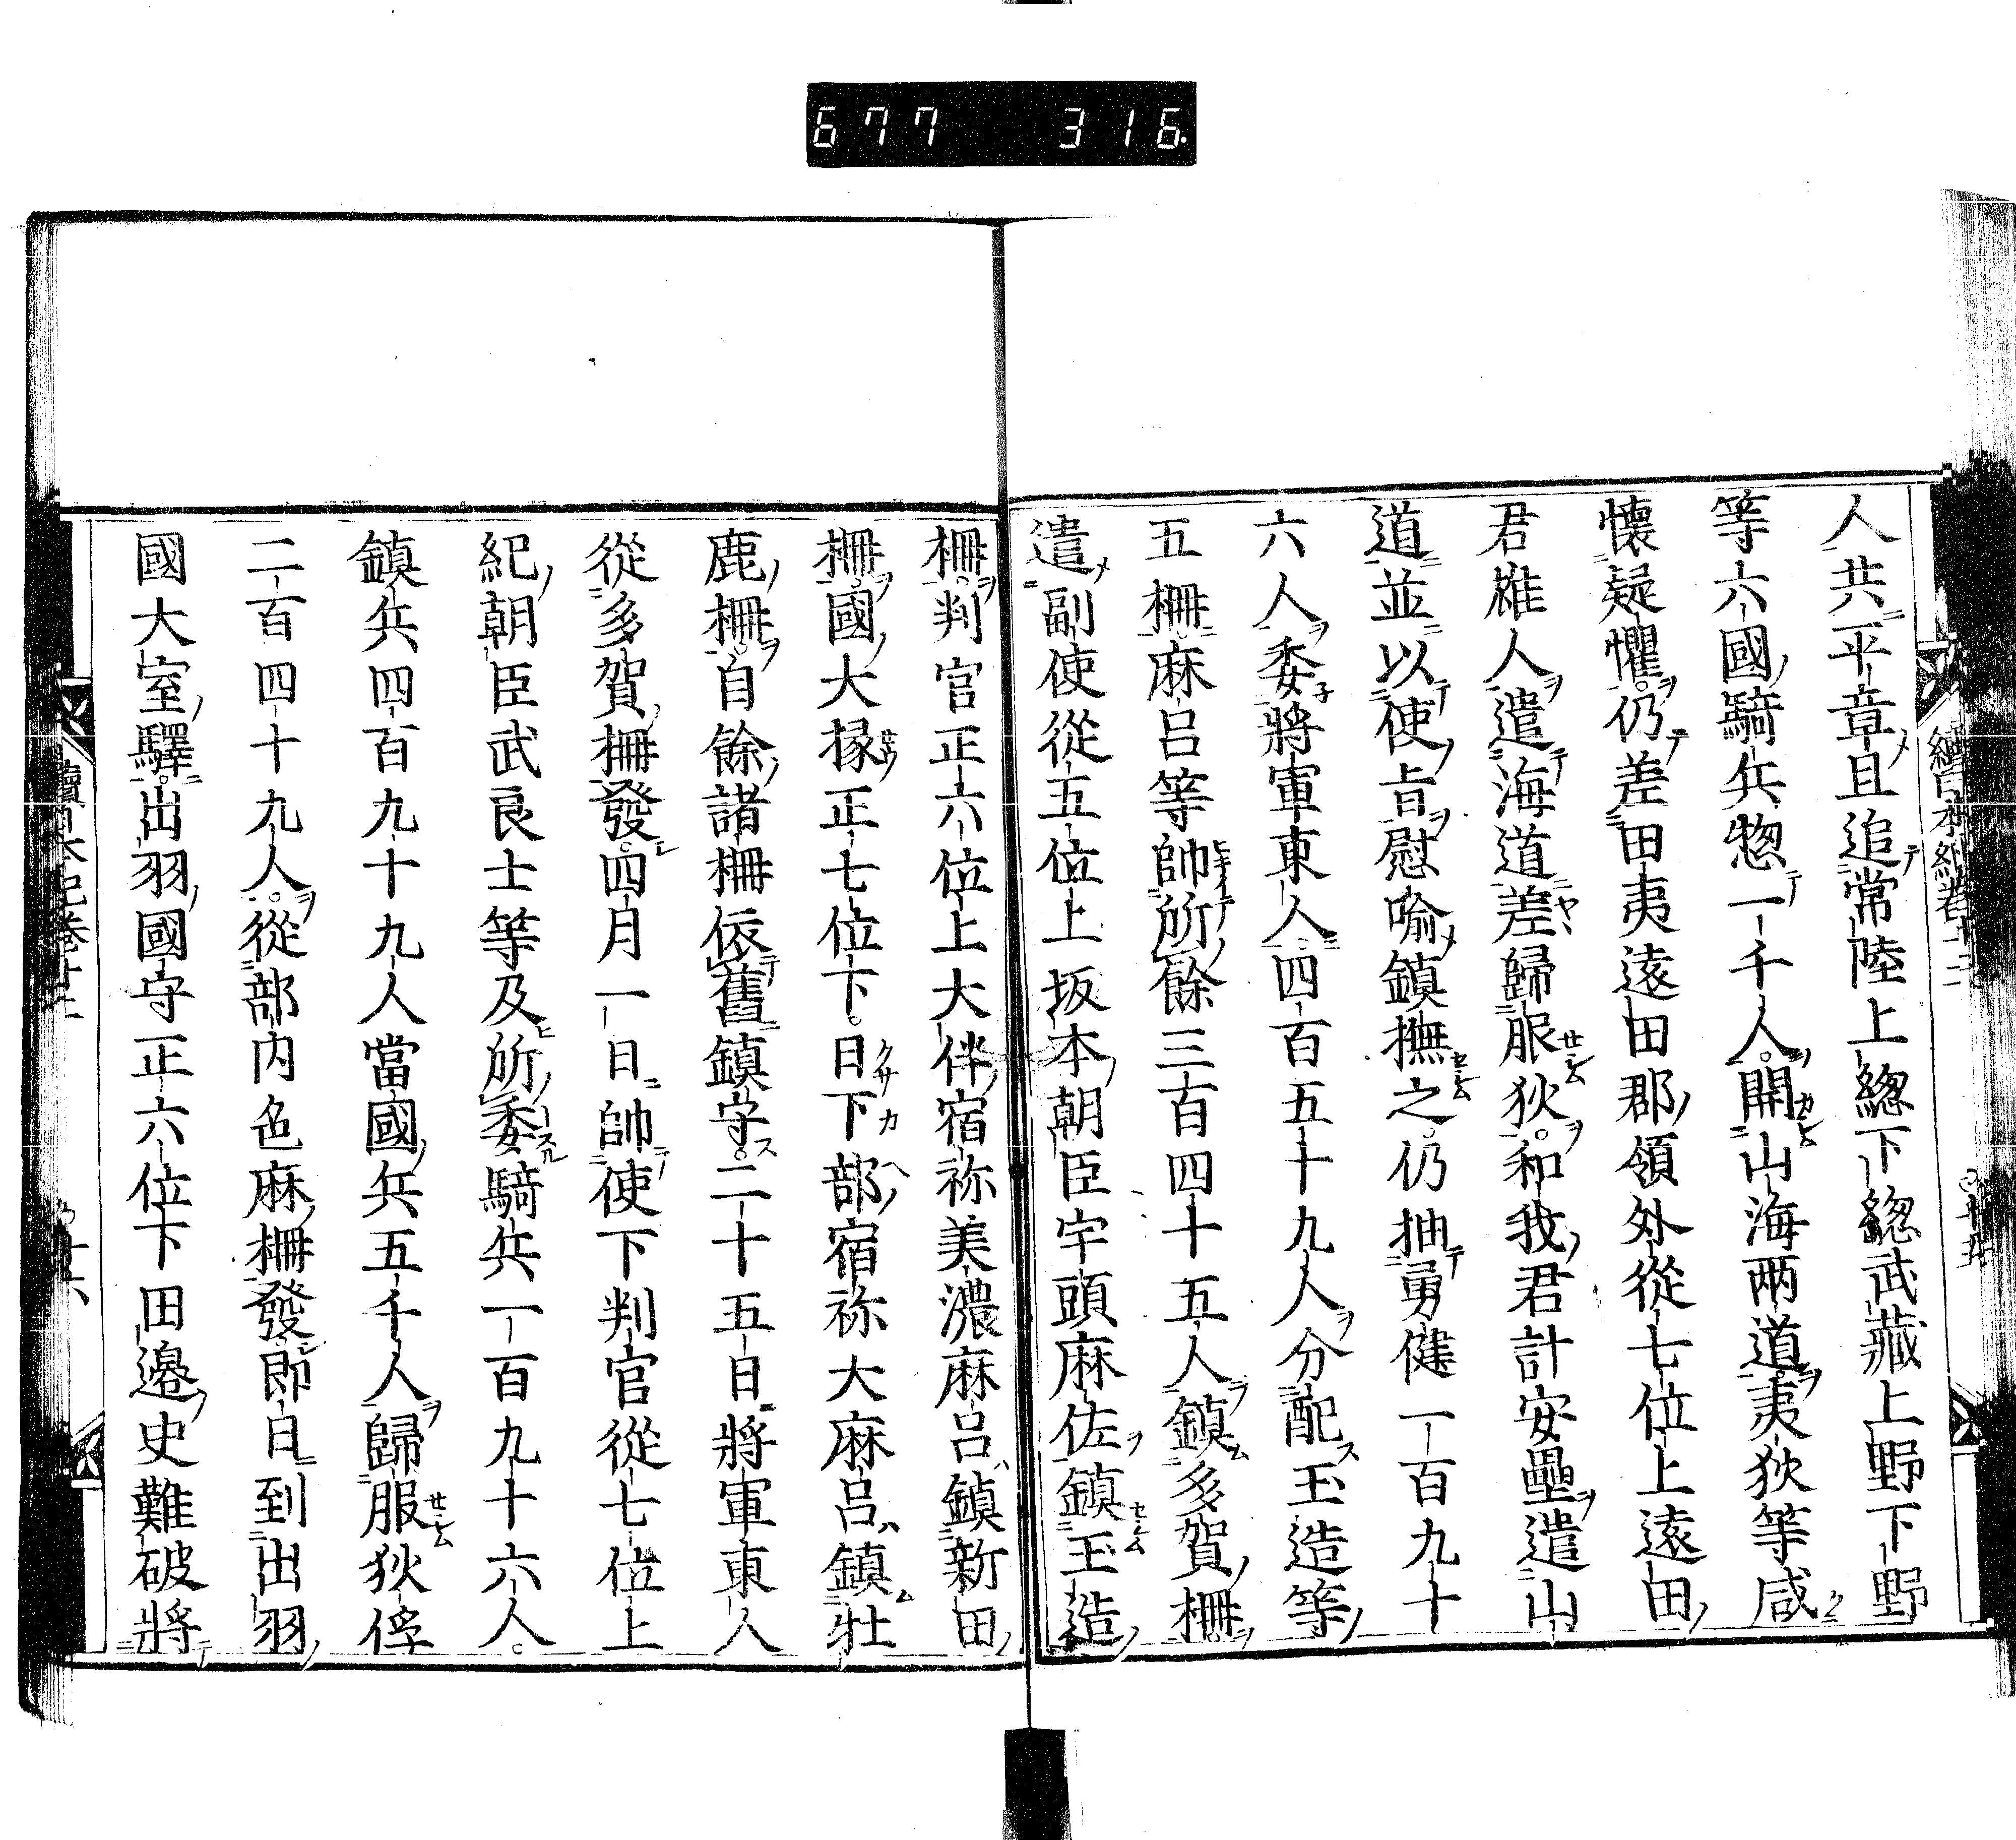 677 316
人共平章且追常陸上総下総武藏上野下野
等六國騎兵惣一千人。開山海兩道夷狄等咸
懷疑懼。仍差田夷遠田郡領外從七位上遠田
君雄人遣海道差歸服狄。和我君計安壘遣山
道並以使旨慰喩鎮撫之。仍抽勇健一百九十
六人委將軍東人。四百五十九人分配玉造等
五柵。麻呂等帥所餘三百四十五人鎮多賀柵。
遣副使從五位上坂本朝臣宇頭麻佐鎮玉造
柵。判官正六位上大伴宿祢美濃麻呂鎮新田
柵。國大掾正七位下。日下部宿祢大麻呂鎮壮
鹿柵。自餘諸柵依舊鎮守。二十五日將軍東人
從多賀柵發。四月一日帥使下判官從七位上
紀朝臣武良士等及所委騎兵一百九十六人。
鎮兵四百九十九人當國兵五千人歸服狄俘
二百四十九人。從部内色麻柵發即日到出羽
國大室驛。出羽國守正六位下田邊史難破將
續日本紀卷十二